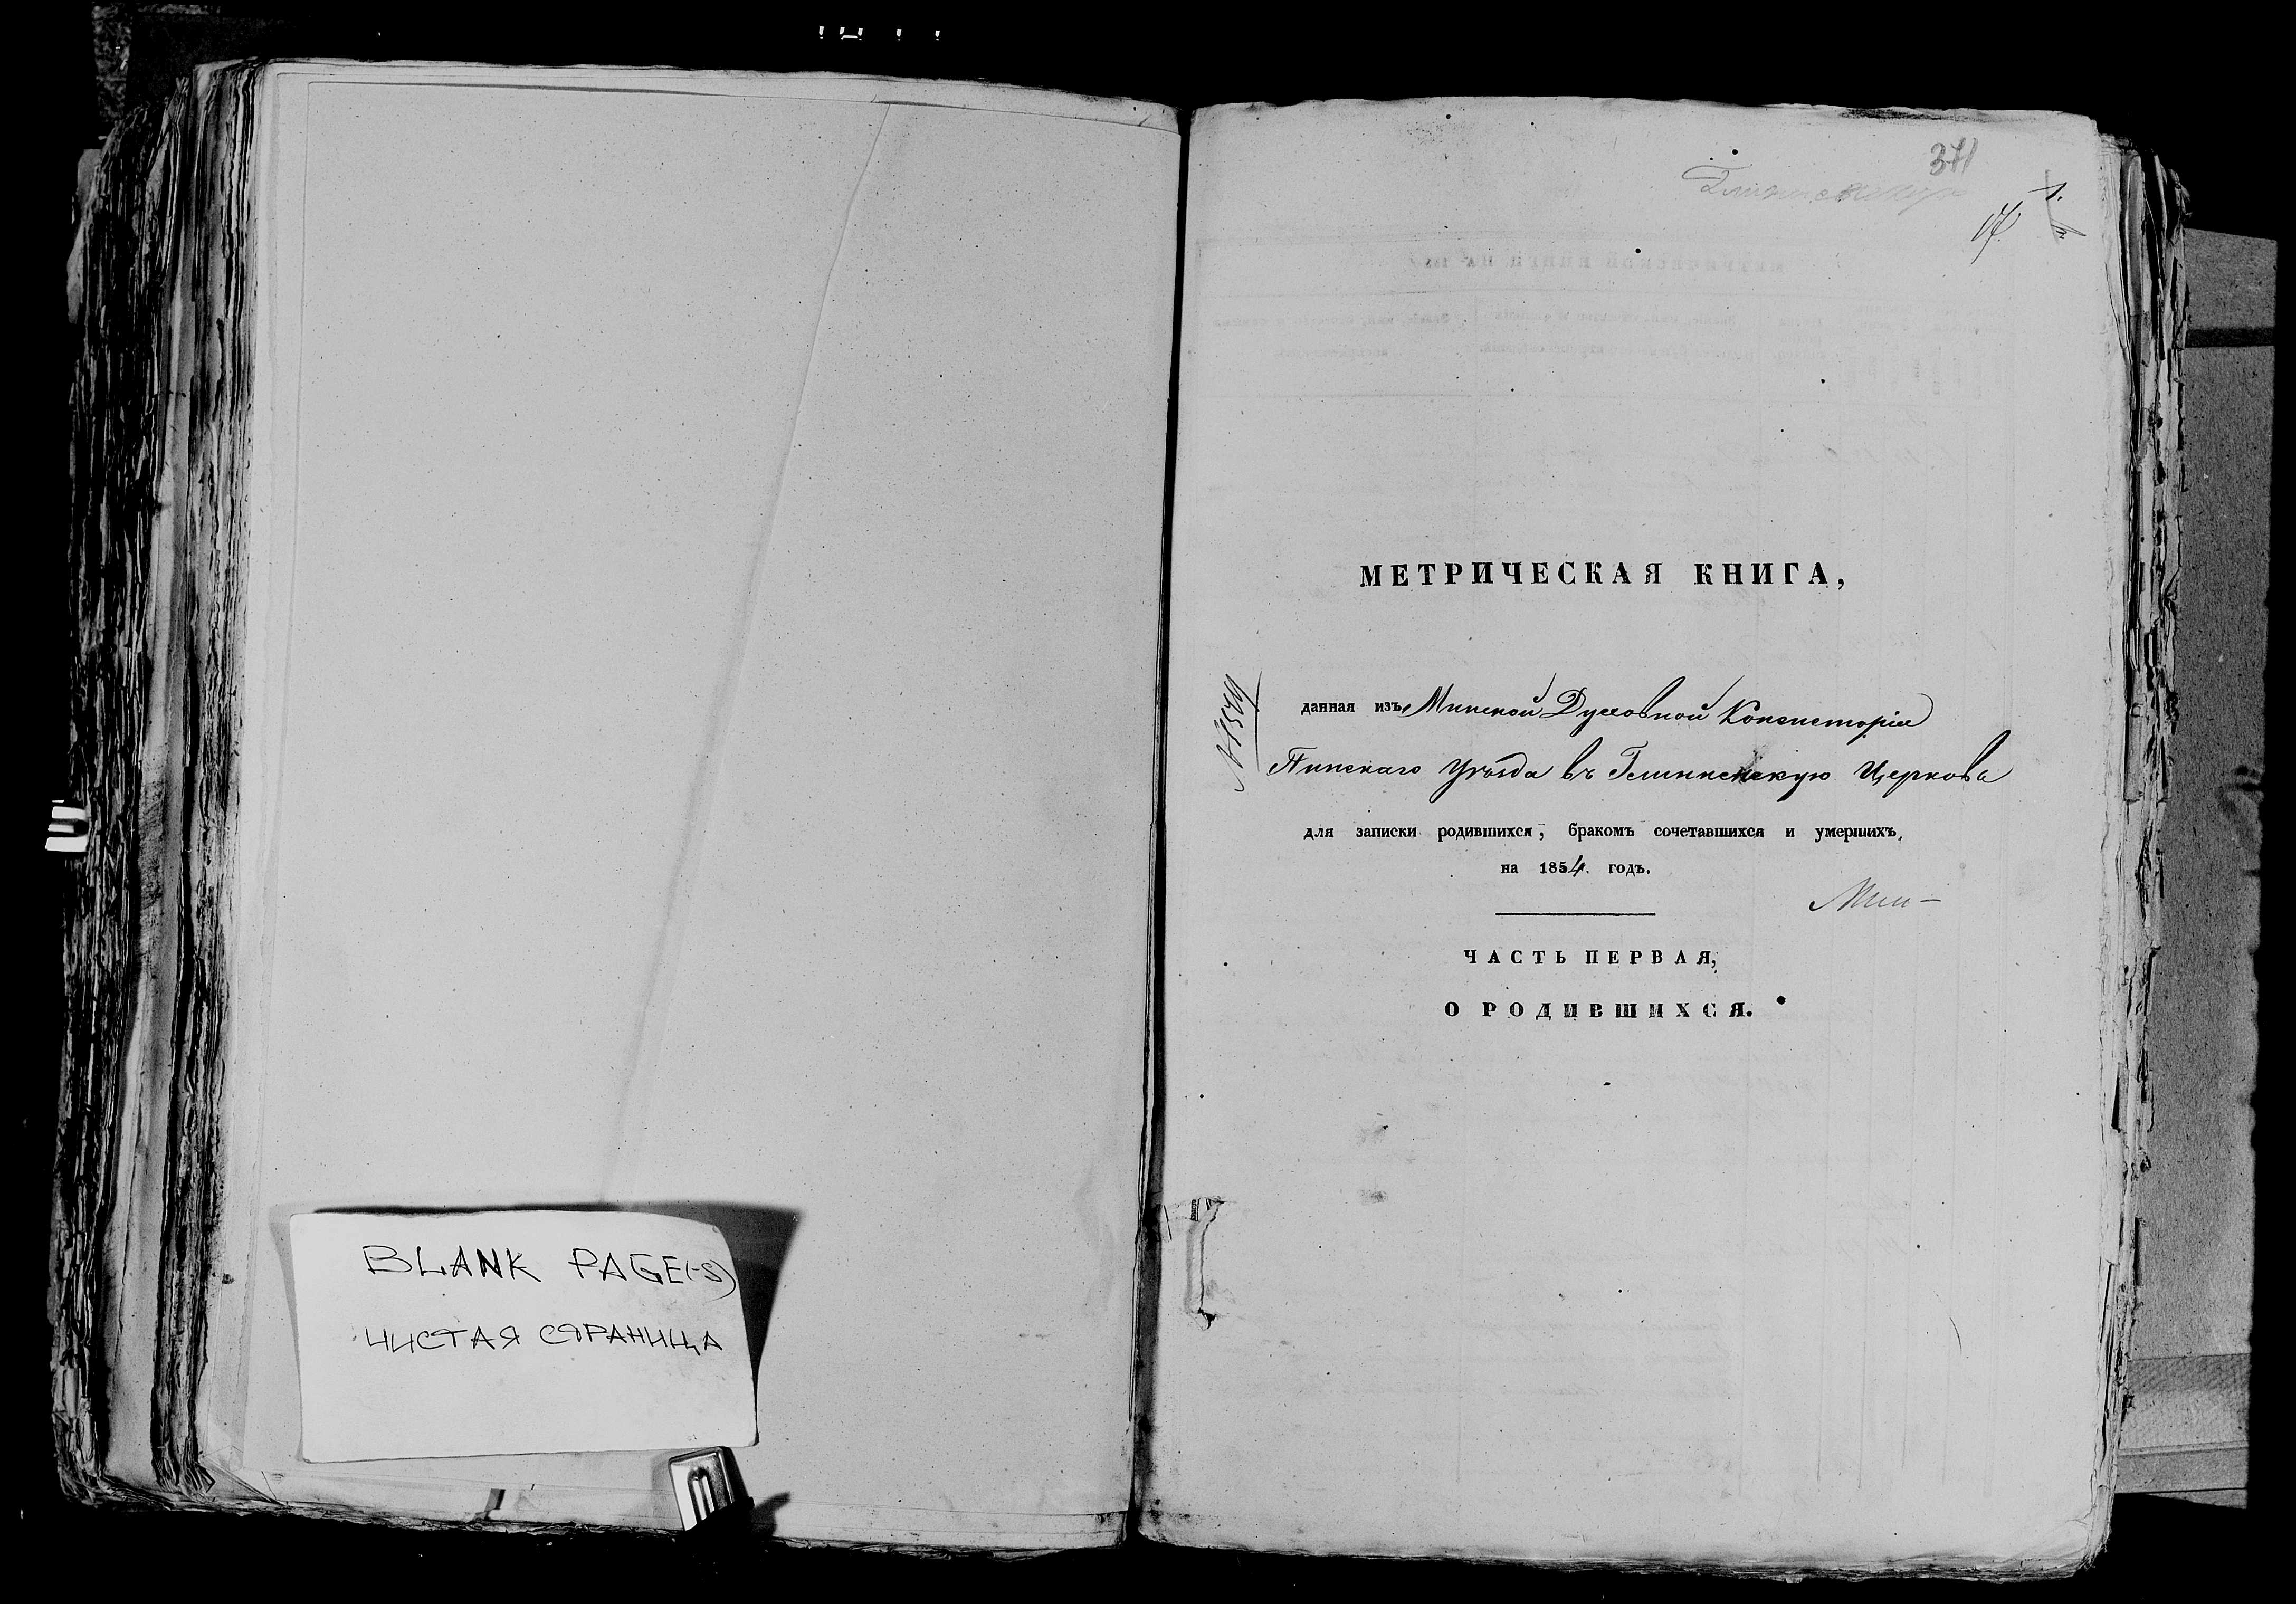 BLANK PAGE(-S)
ЧИСТАЯ СТРАНИЦА
371
1.
17.
МЕТРИЧЕСКАЯ КНИГА,
данная изъ Минской Духовной Консисторіи
Пинскаго Уѣзда въ Глинненскую Церковь
для записки родившихся, бракомъ сочетавшихся и умершихъ,
на 1854. годъ.
ЧАСТЬ ПЕРВАЯ,
О РОДИВШИХСЯ.